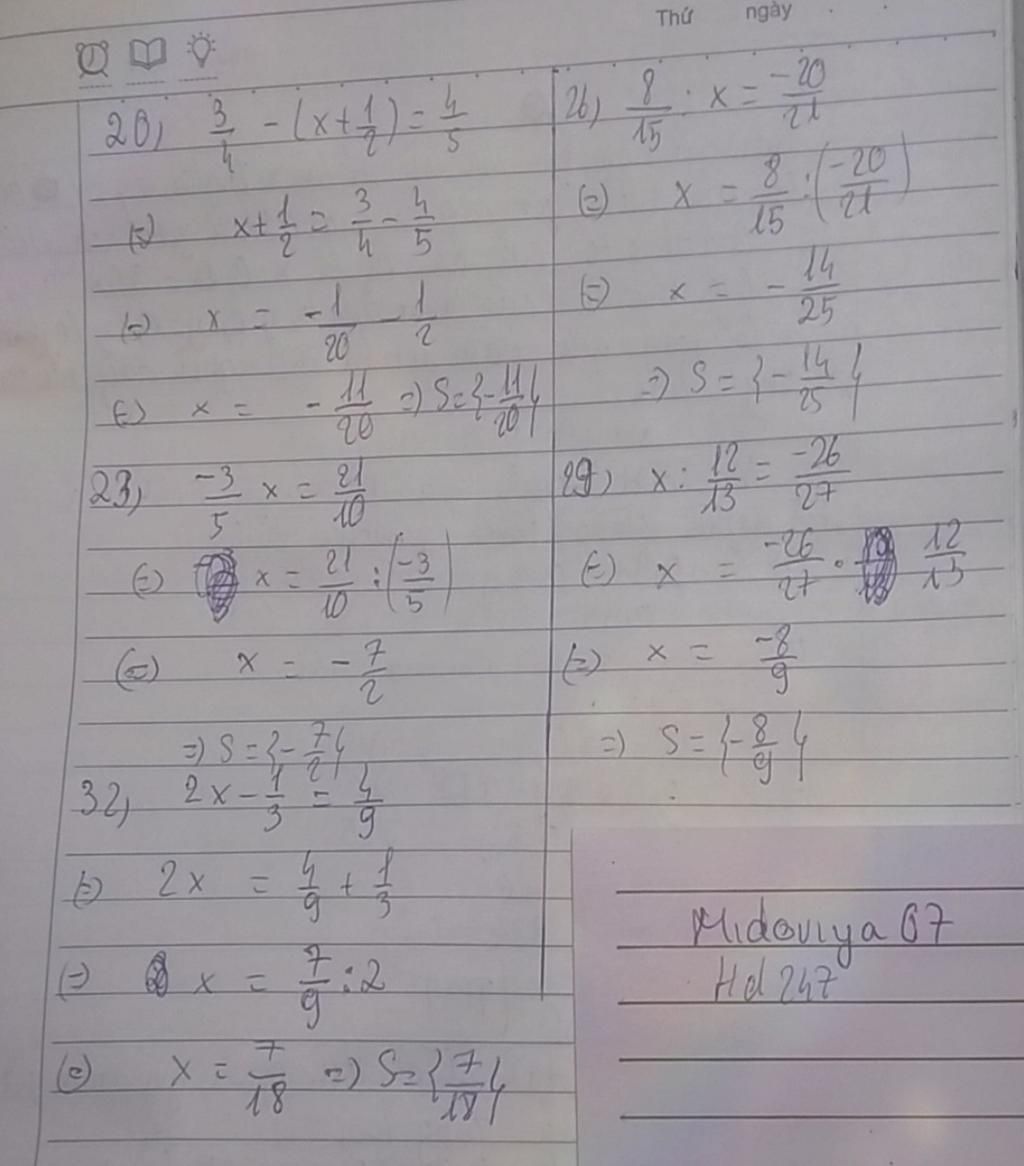 Thứ ngày
20, 3/4 - (x + 1/2) = 4/5
(=) x + 1/2 = 3/4 - 4/5
(=) x = -1/20 - 1/2
(=) x = - 11/20 =) S = {- 11/20}
23, -3/5 x = 21/10
(=) x = 21/10 : (-3/5)
(=) x = - 7/2
=) S = {- 7/2}
32, 2x - 1/3 = 4/9
(=) 2x = 4/9 + 1/3
(=) x = 7/9 : 2
(=) x = 7/18 =) S = {7/18}
26, 8/15 : x = -20/21
(=) x = 8/15 : (-20/21)
(=) x = - 14/25
=) S = {- 14/25}
29, x : 12/13 = -26/27
(=) x = -26/27 · 12/13
(=) x = -8/9
=) S = {- 8/9}
Midoviya 07
Hd 247